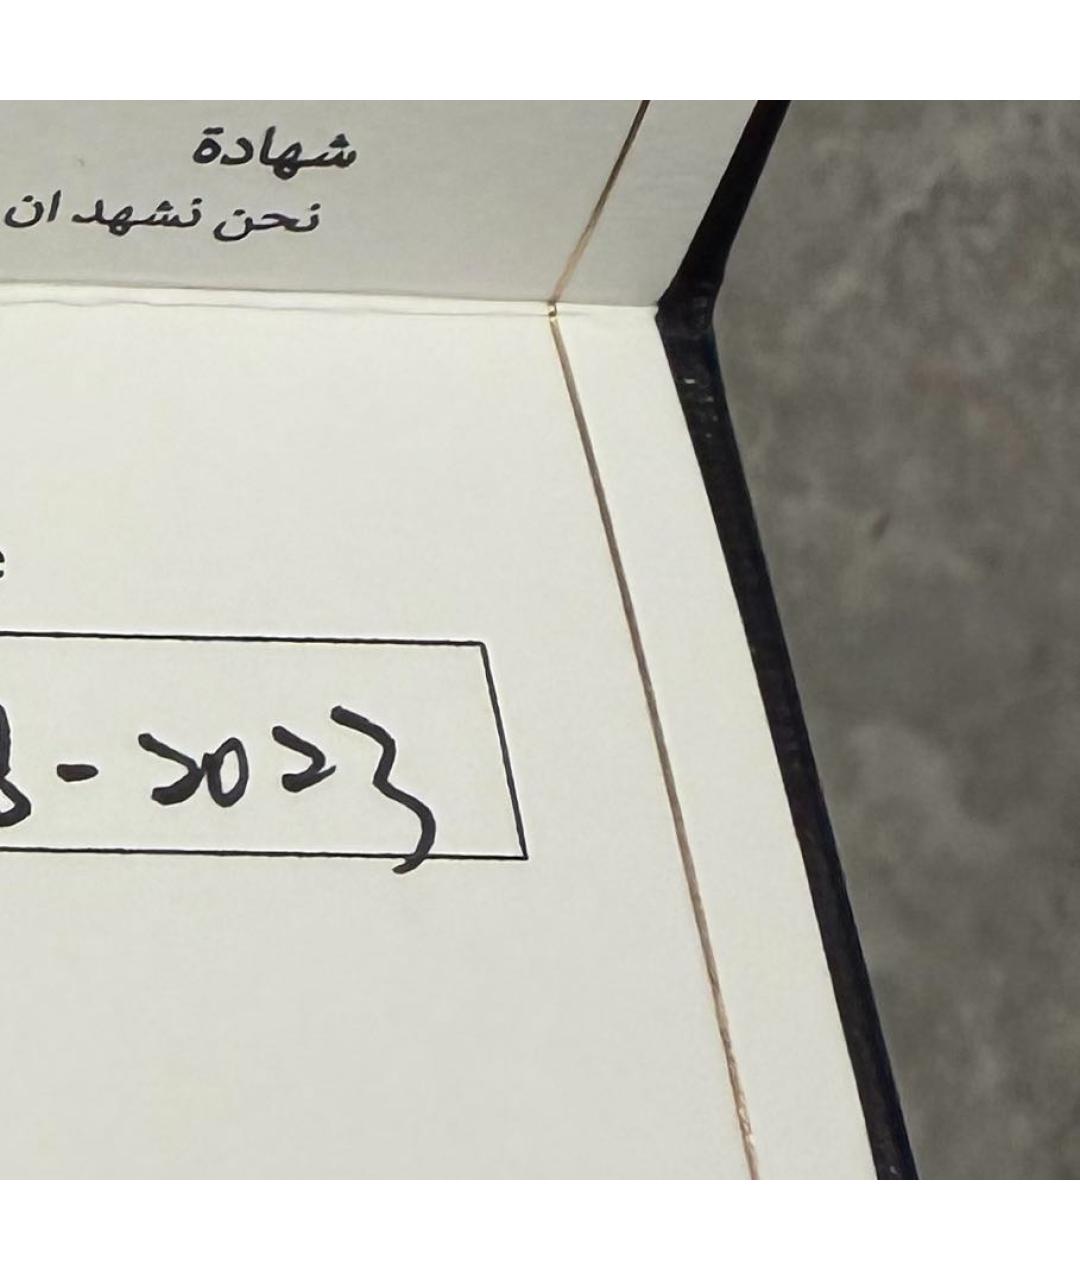 شهادة
نحن نشهد ان
- 2023